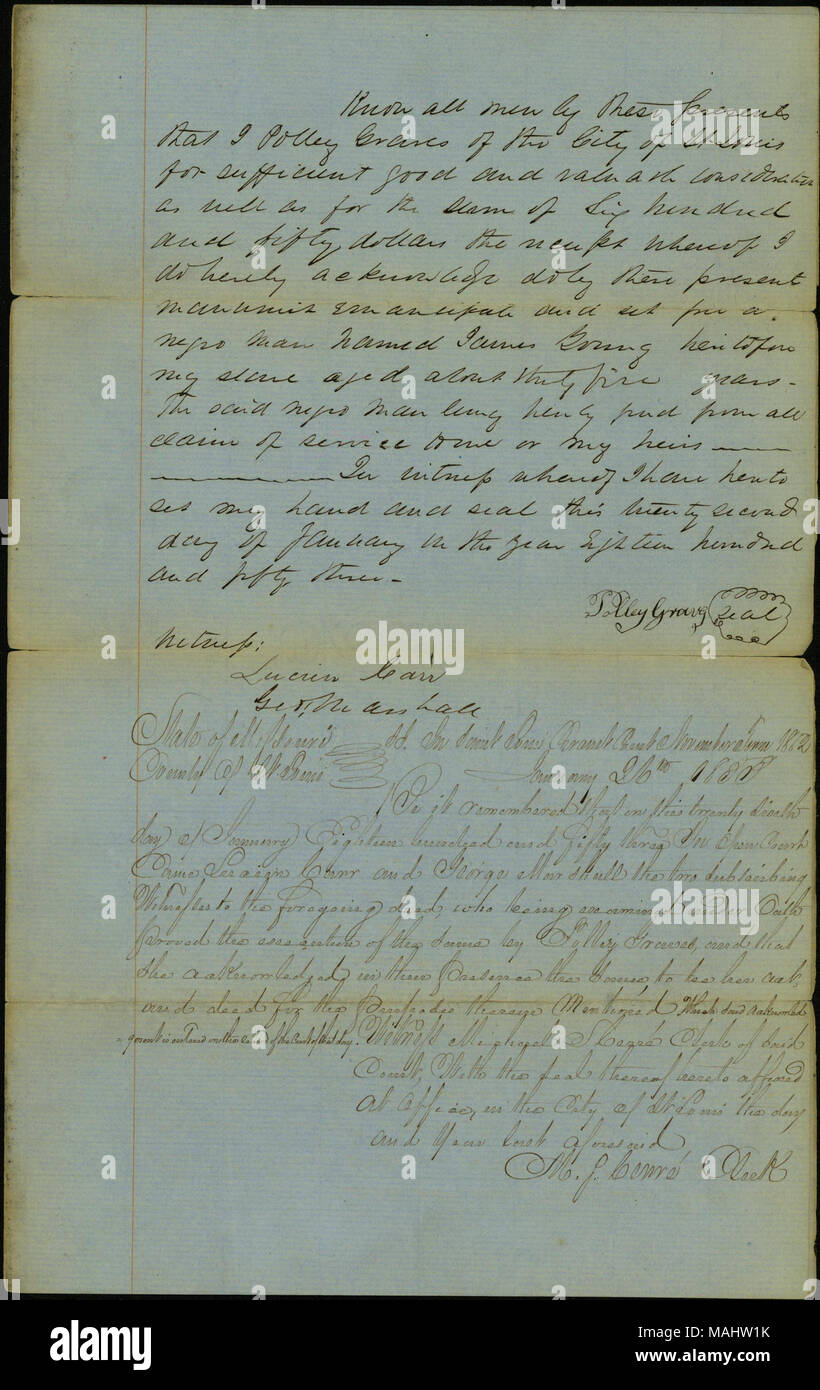 Know all men by these presents
that I Polley Graves of the City of St Louis
for sufficient good and valuable consideration
as well as for the sum of Six hundred
and fifty dollars the receipt whereof I
do hereby acknowledge do by these present
manumit emancipate and set free a
negro man named James Young heretofore
my slave aged about thirty five years -
the said negro man being hereby freed from all
claim of service to me or my heirs
In witness whereof I have hereto
set my hand and seal this twenty second
day of January in the year Eighteen hundred
and fifty three -
Polley Graves seal
Witness:
Lucien Carr
Geo. Marshall
State of Missouri In Saint Louis Circuit Court November Term 1852
County of St Louis January 26th
Be it remembered that on this twenty sixth
day of January Eighteen hundred and fifty three In Open Court
Came Carr and George Marshall the two Subscribing
Witnesses to the foregoing deed, who being examined under Oath
proved the execution of the same by Polley Graves, and that
She acknowledged in their presence the same, to be her act,
and deed for the purposes therein Mentioned Which said acknowled
gement is entered on the record of the Court of that day. Witness Clerk of said
Court, With the seal thereof hereto affixed
at office, in the City of St Louis the day
and Year last aforesaid
Clerk
a alamy
alamy
Image ID: MAHW1K
www.alamy.com